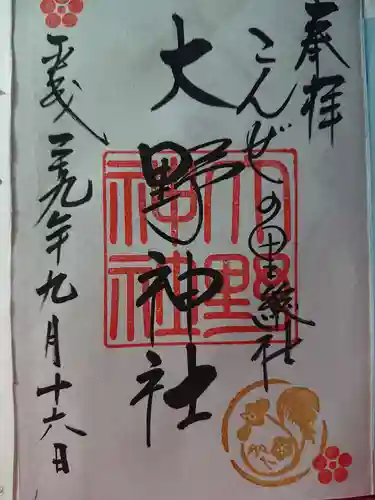 奉拝
こんぜの里総社
大野神社
平成二十九年九月十六日
大野神社